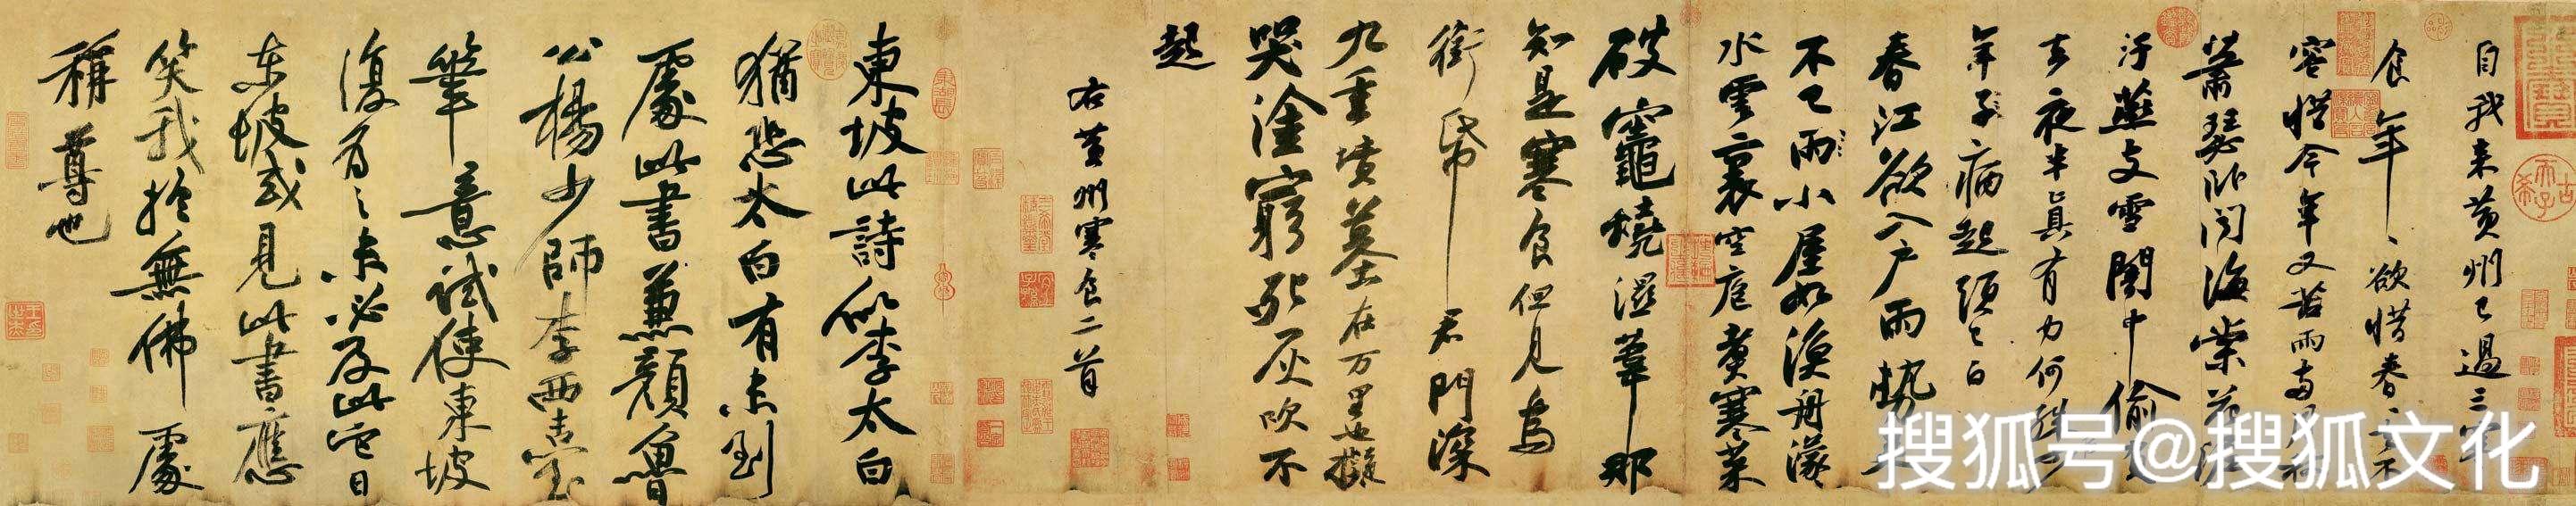 自我来黄州已過三寒
食年〻欲惜春〻去不
容惜今年又苦雨兩月秋
蕭瑟卧聞海棠花泥
汙燕支雪闇中偷負
去夜半真有力何殊少
年子病起頭已白
春江欲入戶雨勢来
不已雨小屋如漁舟濛〻
水雲裏空庖煑寒菜
破竈燒濕葦那
知是寒食但見烏
銜帋君門深
九重墳墓在万里也擬
哭塗窮死灰吹不
起
右黄州寒食二首
東坡此詩似李太白
猶恐太白有未到
處此書兼顏魯
公楊少師李西臺
筆意試使東坡
復為之未必及此它日
東坡或見此書應
笑我於無佛處
稱尊也
搜狐号@搜狐文化